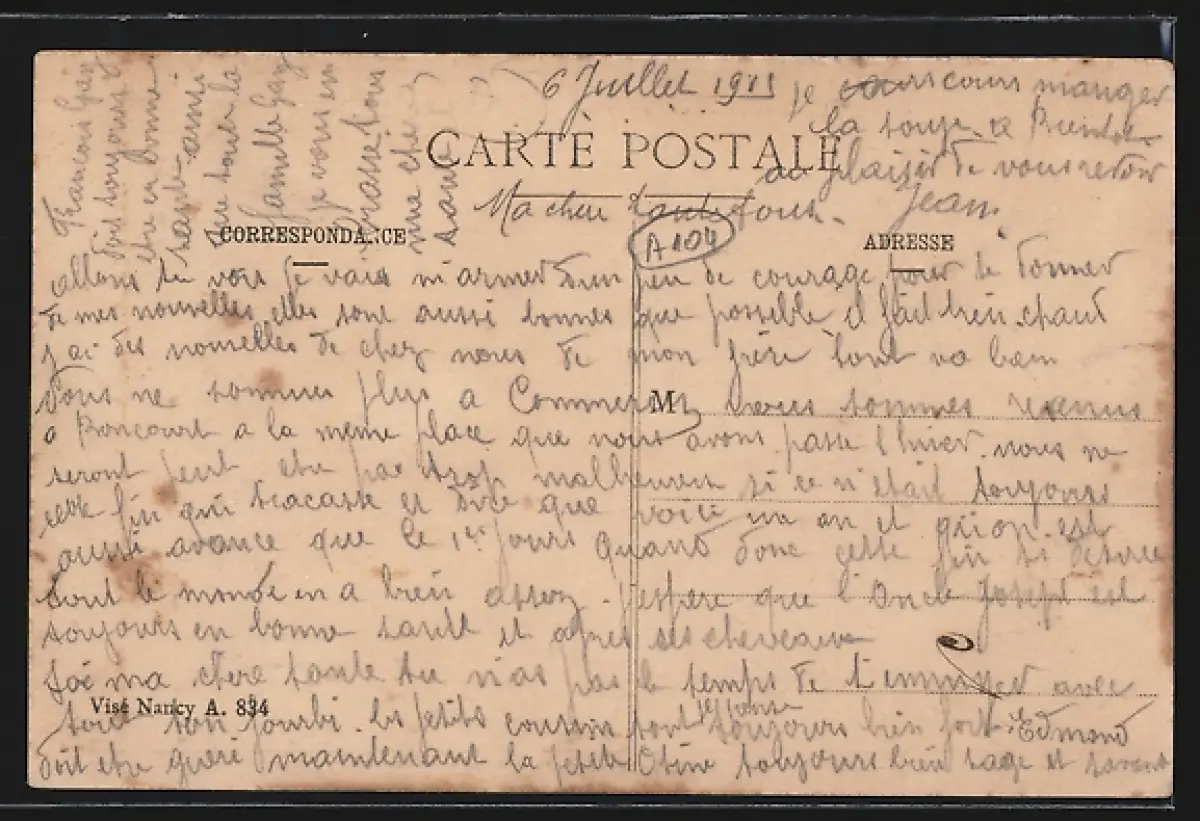 6 Juillet 1915
CARTE POSTALE
Ma chere tante
A 104
CORRESPONDANCE
ADRESSE
allons tu vois je vais m'armer d'un peu de courage pour te donner
de mes nouvelles elles sont aussi bonnes que possible il fait bien chaud
j'ai des nouvelles de chez nous de mon frère tout va bien
nous ne sommes plus a Commercy nous sommes revenus
M
a Boncourt a la meme place que nous avons passé l'hiver. nous ne
seront peut etre pas trop malheureux si ce n'était toujours
cette fin qui tracasse et dire que voici un an et qu'on est
aussi avancé que le 1er jours quand donc cette fin si désirée
tout le monde en a bien assez. J'espère que l'Oncle Joseph est
toujours en bonne santé et apres ses chevaux
toi ma chère tante tu n'as pas le temps de t'ennuyer avec
Visé Nancy A. 834
tout ton fourbi. les petits cousin sont je pense toujours bien fort Edmond
doit etre guéri maintenant la petite toujours bien sage et
François Gay
doit toujours
etre en bonne
santé ainsi
que toute la
famille Gay
je vous en
brasse tous
ma chere
tante
je cours manger
la soupe.
au plaisir de vous revoir
Jean